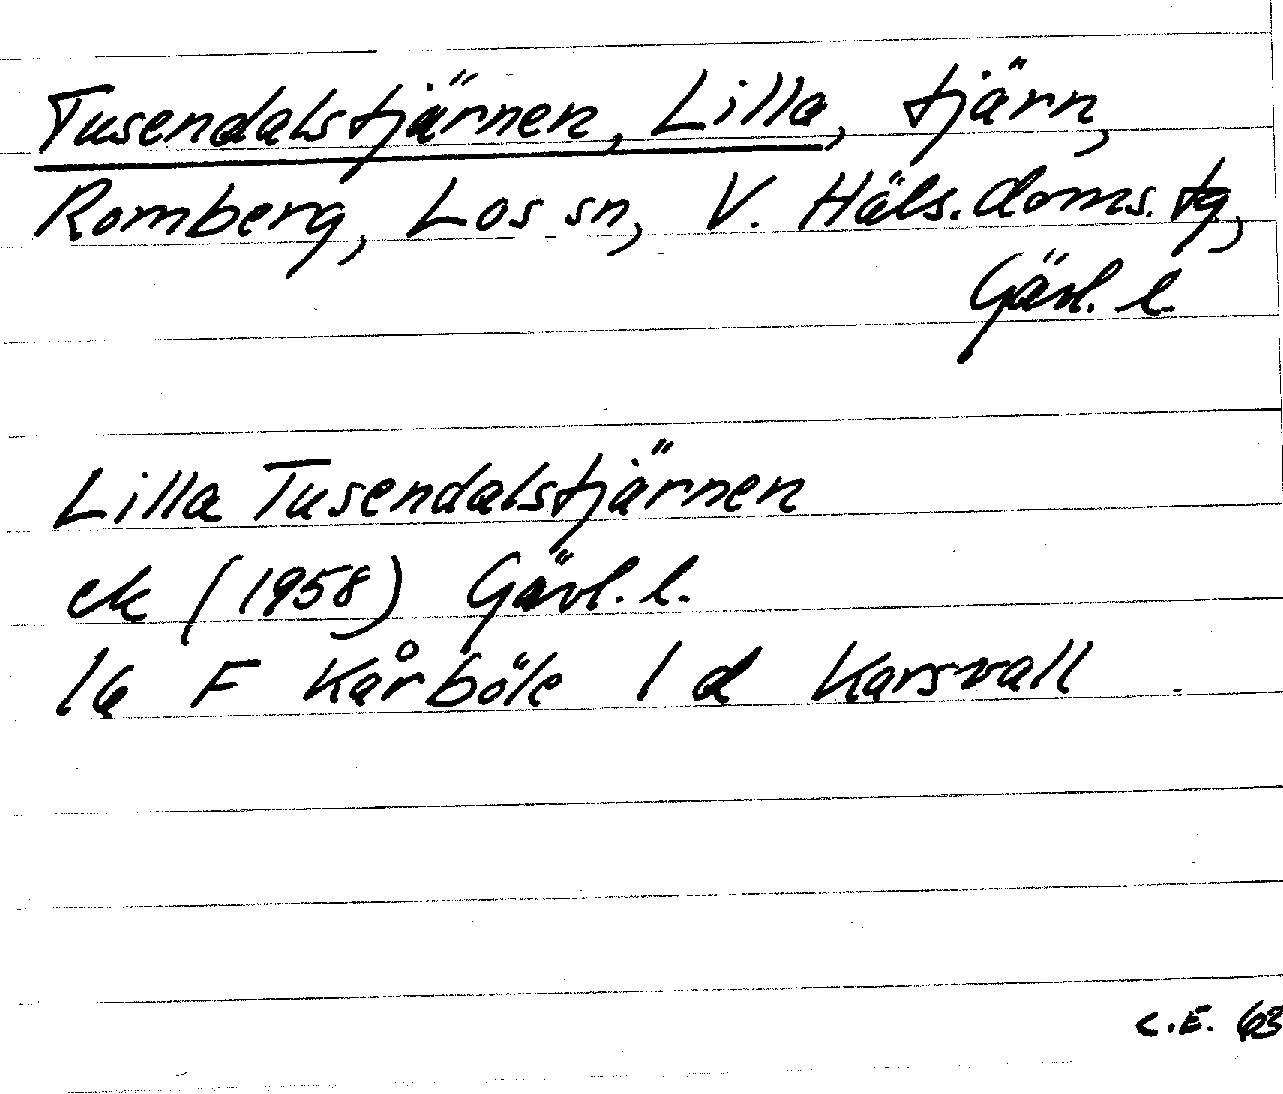 Tusendalstjärnen, Lilla, tjärn,
Romberg, Los sn, V. Häls. doms. tg,
Gävl. l.
Lilla Tusendalstjärnen
ek (1958) Gävl. l.
16 F Kårböle 1 d Karsvall
C.E. 63